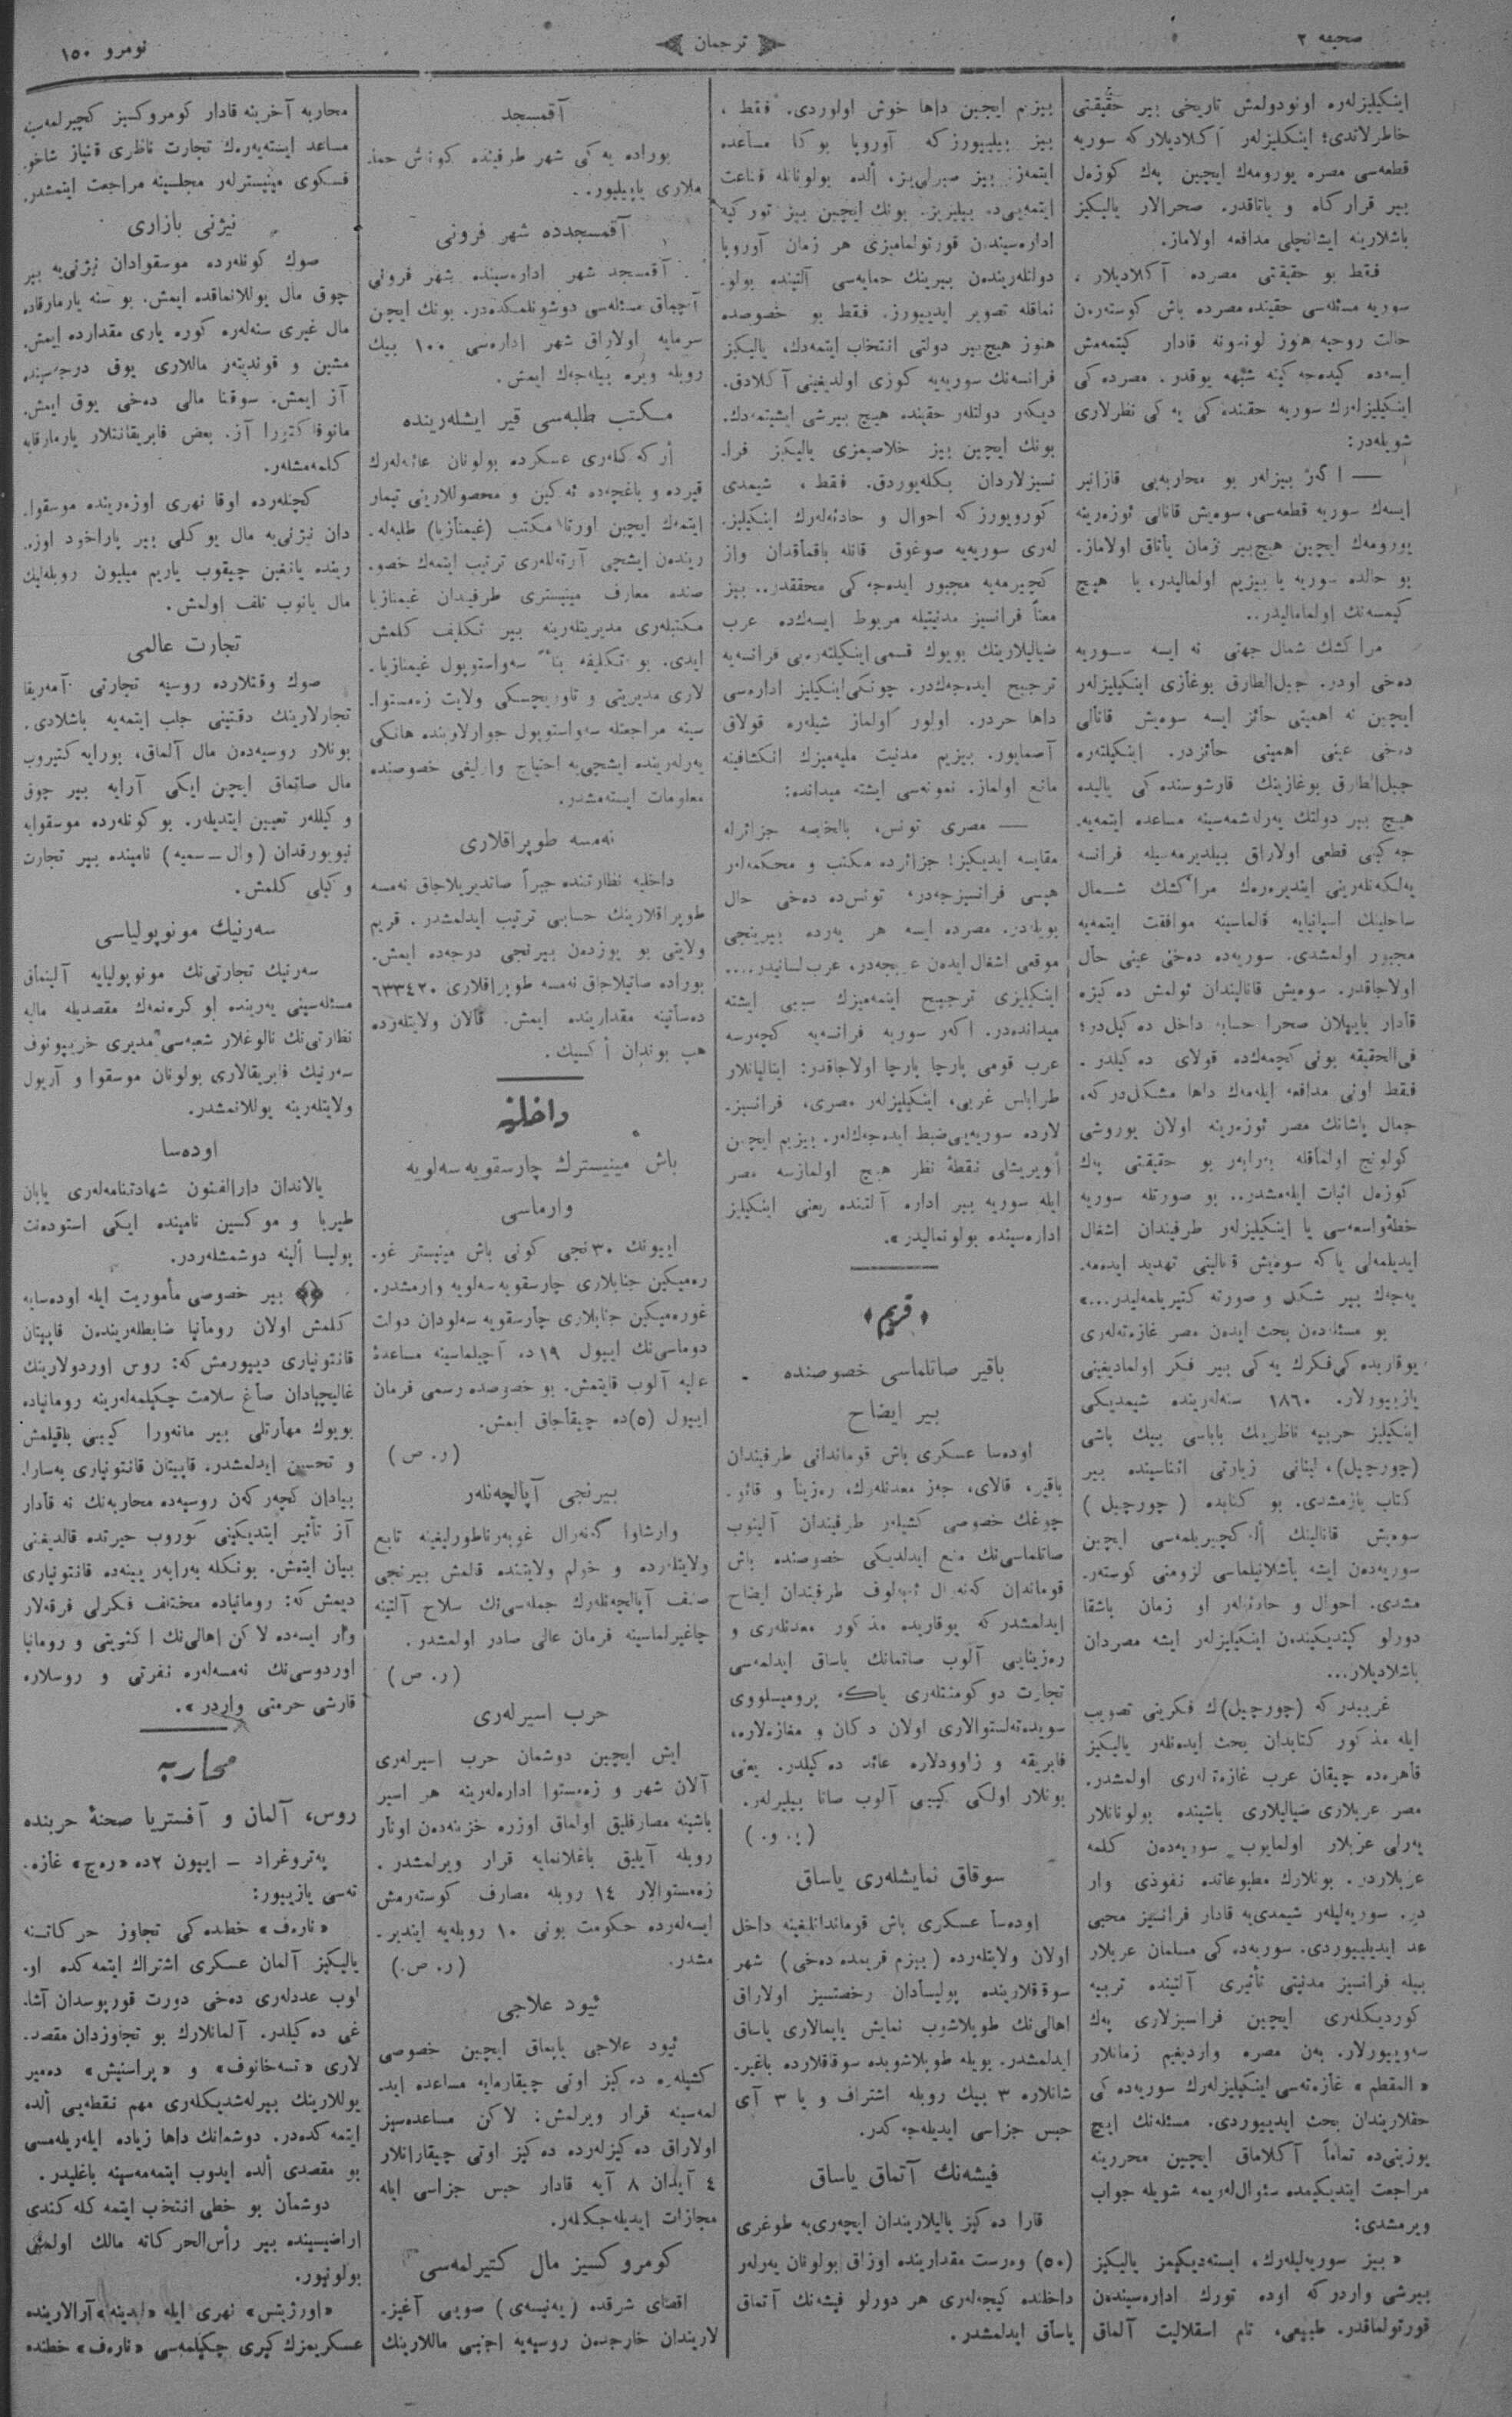 صحیفه ٢
ترجمان
نومرو ١٥٠
اینكیلیزلەره اونودولمش تاریخی بیر حقیقتی
خاطرلاتدی؛ اینكلیزلەر آكلادیلاركه سوریه
قطعەسی مصره یورومەك ایچین پەك كوزەل
بیر قرارگاه و یاتاقدر. صحرالار یالیكیز
باشلارینه ایشانچلی مدافعه اولاماز.
فقط بو حقیقتی مصرده آكلادیلار ،
سوریه مسئلەسی حقینده مصرده باش كوستەرەن
حالت روحیه هنوز لوندونه قادار كیتمەمش
ایسەده كیدەجەكینه شبهه یوقدر. مصردەكی
اینكیلیزلەرك سوریه حقیندەكی یەكی نظرلاری
شویلەدر:
— اگر بیزلەر بو محاربەیی قازانیر
ایسەك سوریه قطعەسی، سوەیش قانالی ئوزەرینه
یورومەك ایچین هیچ بیر زمان یاتاق اولاماز.
بو حالده سوریه یا بیزیم اولمالیدر، یا هیچ
كیمسەنك اولمامالیدر..
مراكشك شمال جهتی نه ایسه سوریه
دەخی اودر. جبل الطارق بوغازی اینكیلیزلەر
ایچین نه اهمیتی حائز ایسه سوەیش قانالی
دەخی عینی اهمیتی حائزدر. اینكیلتەره
جبل الطارق بوغازینك قارشوسندەكی یالیده
هیچ بیر دولتك یەرلەشمەسینه مساعده ایتمەیە۔
جەكینی قطعی اولاراق بیلدیرمەسیله فرانسه
یەلكەنلەرینی ایندیرەرەك مراكشك شمال
ساحلینك اسپانیایه قالماسینه موافقت ایتمەیه
مجبور اولمشدی. سوریەده دەخی عینی حال
اولاجاقدر. سوەیش قانالیندان ئولمش دەكیزه
قادار یاییلان صحرا حسابه داخل دەكیلدر؛
فی الحقیقه بونی كچمەكده قولای دەكیلدر.
فقط اونی مدافعه ایلەمەك داها مشكلدركه،
جمال پاشانك مصر ئوزەرینه اولان یوروشی
كولونج اولماقله بەرابەر بو حقیقتی پەك
كوزەل اثبات ایلەمشدر.. بو صورتله سوریه
خطۀ واسعەسی یا اینكیلیزلەر طرفیندان اشغال
ایدیلمەلی یاكه سوەیش قنالینی تهدید ایدەمە۔
یەجەك بیر شكل و صورته كتیریلمەلیدر...»
بو مسئلەدن بحث ایدەن مصر غازەتەلەری
یوقاریدەكی فكرك یەكی بیر فكر اولمادیغینی
یازییورلار. ١٨٦٠ سنەلەرینده شیمدیكی
اینكیلیز حربیه ناظرینك باباسی بیك باشی
(چورچیل)، لبنانی زیارتی اثناسینده بیر
كتاب یازمشدی. بو كتابده (چورچیل)
سوەیش قنالینك ألە كچیریلمەسی ایچین
سوریەدەن ایشه باشلانیلماسی لزومنی كوستەر۔
مشدی. احوال و حادثەلەر او زمان باشقا
دورلو كیتدیكیندەن اینكیلیزلەر ایشه مصردان
باشلادیلار...
غریبدركه (چورچیل)ك فكرینی تصویب
ایله مذكور كتابدان بحث ایدەنلەر یالیكیز
قاهرەده چیقان عرب غازەتەلەری اولمشدر.
مصر عربلاری ضیالیلاری باشینده بولونانلار
یەرلی عربلار اولمایوب سوریەدەن كلمه
عربلاردر. بونلارك مطبوعاتده نفوذی وار
در. سوریەلیلەر شیمدی‌یه قادار فرانسیز محبی
عد ایدیلییوردی. سوریەدەكی مسلمان عربلار
بیله فرانسیز مدنیتی تأثیری آلتینده تربیه
كوردیكلەری ایچین فرانسیزلاری پەك
سەوییورلار. بەن مصره واردیغیم زمانلار
«المقطم» غازەتەسی اینكیلیزلەرك سوریەدەكی
حقلاریندان بحث ایدییوردی. مسئلەنك ایچ
یوزینی‌ده تماماً آكلاماق ایچین محررینه
مراجعت ایتدیكیمده سئوال لەریمه شویله جواب
ویرمشدی:
« بیز سوریەلیلەرك، ایستەدیكیمز یالیكیز
بیرشی واردركه اوده تورك ادارەسیندەن
قورتولماقدر. طبیعی، تام استقلالیت آلماق
بیزیم ایچین داها خوش اولوردی. فقط ،
بیز بیلییورزكه آوروپا بوكا مساعده
ایتمەز. بیز صبرلی‌یز، ألده بولونانله قناعت
ایتمەیی‌ده بیلیریز. بونك ایچین بیز توركیه
ادارەسیندن قورتولمامیزی هر زمان آوروپا
دولتلەریندەن بیرینك حمایەسی آلتینده بولو۔
نماقله تصویر ایدییورز. فقط بو خصوصده
هنوز هیچ بیر دولتی انتخاب ایتمەدك، یالیكیز
فرانسەنك سوریەیه كوزی اولدیغینی آكلادق.
دیكەر دولتلەر حقینده هیچ بیرشی ایشیتمەدك.
بونك ایچین بیز خلاصیمزی یالیكیز فرا۔
نسیزلاردان بكلەیوردق. فقط ، شیمدی
كورویورزكه احوال و حادثەلەرك اینكیلیز۔
لەری سوریەیه صوغوق قانله باقماقدان واز
كچیرمەیه مجبور ایدەجەكی محققدر.. بیز
معناً فرانسیز مدنیتیله مربوط ایسەكده عرب
ضیالیلارینك بویوك قسمی اینكیلتەرەیی فرانسەیه
ترجیح ایدەجەكدر. چونكی اینكیلیز ادارەسی
داها حردر. اولور اولماز شیلەره قولاق
آصمایور. بیزیم مدنیت ملیەمیزك انكشافینه
مانع اولماز. نمونەسی ایشته میدانده:
— مصری تونس، بالخاصه جزائرله
مقایسه ایدیكیز! جزائرده مكتب و محكمەلەر
هپسی فرانسیزجەدر؛ تونس‌ده دەخی حال
بویلەدر. مصرده ایسه هر یەرده بیرینجی
موقعی اشغال ایدەن عربجەدر، عرب لسانیدر....
اینكیلیزی ترجیح ایتمەمیزك سببی ایشته
میداندەدر. اكەر سوریه فرانسەیه كچەرسه
عرب قومی پارچا پارچا اولاجاقدر: ایتالیانلار
طرابلس غربی، اینكیلیزلەر مصری، فرانسیز۔
لارده سوریەیی ضبط ایدەجەكلەر. بیزیم ایچین
ألویریشلی نقطۀ نظر هیچ اولمازسه مصر
ایله سوریه بیر اداره آلتنده یعنی اینكیلیز
ادارەسینده بولونمالیدر».
«قریم»
باقیر صاتلماسی خصوصنده
بیر ایضاح
اودەسا عسكری باش قوماندانی طرفیندان
باقیر، قالای، جەز معدنلەرك، رەزینا و قائو۔
چوغك خصوصی كشیلەر طرفیندان آلینوب
صاتلماسی‌نك منع ایدلدیكی خصوصنده باش
قوماندان كەنەرال طرفیندان ایضاح
ایدلمشدركه یوقاریده مذكور معدنلەری و
رەزینایی آلوب صاتمانك یاساق ایدلمەسی
تجارت دوكومنتلەری یاكه پرومیسلووی
سویدەتەلستوالاری اولان دكان و مغازەلاره،
فابریقه و زاوودلاره عائد دەكیلدر. یعنی
بونلار اولكی كیبی آلوب صاتا بیلیرلەر.
سوقاق نمایشلەری یاساق
اودەسا عسكری باش قوماندانلیغینه داخل
اولان ولایتلەرده (بیزم قریمده دەخی) شهر
سوقاقلارینده پولیسادان رخصتسیز اولاراق
اهالی‌نك طوپلاشوب نمایش یاپمالاری یاساق
ایدلمشدر. بویله طوپلاشوبده سوقاقلارده باغیر۔
شانلاره ٣ بیك روبله اشتراف و یا ٣ آی
حبس جزاسی ایدیلەجەكدر.
فیشەنك آتماق یاساق
قارا دەكیز یالیلاریندان ایچەری‌یه طوغری
(٥٠) وەرست مقدارینده اوزاق بولونان یەرلەر
داخلنده كیجەلەری هر دورلو فیشەنك آتماق
یاساق ایدلمشدر.
آقمسجد
بوراده یەكی شهر طرفینده كونش حما۔
ملاری یاپیلیور.
آقمسجدده شهر فرونی
آقمسجد شهر ادارەسینده شهر فرونی
آچماق مسئلەسی دوشونلمكدەدر. بونك ایچین
سرمایه اولاراق شهر ادارەسی ١٠٠ بیك
روبله ویره بیلەجەك ایمش.
مكتب طلبەسی قیر ایشلەرینده
أركەكلەری عسكرده بولونان عائلەلەرك
قیرده و باغچەده ئەكین و محصوللارینی تیمار
ایتمەك ایچین اورتا مكتب (غیمنازیا) طلبەلە۔
ریندەن ایشجی آرتەللەری ترتیب ایتمەك خصو۔
صنده معارف مینیستری طرفیندان غیمنازیا
مكتبلەری مدیریتلەرینه بیر تكلیف كلمش
ایدی. بو تكلیفه بناءً سەواستوپول غیمنازیا۔
لاری مدیریتی و تاوریچسكی ولایت زەمستوا۔
سینه مراجعتله سەواستوپول جوارلاوینده هانكی
یەرلەرینده ایشچی‌یه احتیاج وارلیغی خصوصنده
معلومات ایستەمشدر.
نەمسه طوپراقلاری
داخلیه نظارتنده جبراً صاتدیریلاجاق نەمسه
طوپراقلارینك حسابی ترتیب ایدلمشدر. قریم
ولایتی بو یوزدەن بیرنجی درجەده ایمش.
بوراده صاتیلاجاق نەمسه طوپراقلاری ٦٣٣٤٢٠
دەساتینه مقدارینده ایمش. قالان ولایتلەرده
هب بوندان أكسیك.
داخلیه
باش مینیسترك چارسقویه سەلویه
وارماسی
ایيونك ٣٠نجی كونی باش مینیستر غو۔
رەمیكین جنابلاری چارسقویه سەلویه وارمشدر.
غورەمیكین جنابلاری چارسقویه سەلودان دولت
دوماسی‌نك ایيول ١٩ده آچیلماسینه مساعدۀ
عالیه آلوب قایتمش. بو خصوصده رسمی فرمان
ایيول (٥)ده چیقاجاق ایمش.
(ر. ص)
بیرنجی آپالچەنلەر
وارشاوا گەنەرال غوبەرناطورلیغینه تابع
ولایتلەرده و خولم ولایتنده قالمش بیرنجی
صنف آپالچەنلەرك جملەسی‌نك سلاح آلتینه
چاغیرلماسینه فرمان عالی صادر اولمشدر.
(ر. ص)
حرب اسیرلەری
ایش ایچین دوشمان حرب اسیرلەری
آلان شهر و زەمستوا ادارەلەرینه هر اسیر
باشینه مصارفلیق اولماق اوزره خزینەدەن اونار
روبله آیلیق باغلانمایه قرار ویرلمشدر.
زەمستوالار ١٤ روبله مصارف كوستەرمش
ایسەلەرده حكومت بونی ١٠ روبلەیه ایندیر۔
مشدر. (ر. ص.)
ئیود علاجی
ئیود علاجی یاپماق ایچین خصوصی
كشیلەره دەكیز اوتی چیقارمایه مساعده اید۔
لمەسینه قرار ویرلمش: لاكن مساعدەسیز
اولاراق دەكیزلەرده دەكیز اوتی چیقارانلار
٤ آیدان ٨ آیه قادار حبس جزاسی ایله
مجازات ایدیلەجكلەر.
كومروكسیز مال كتیرلمەسی
اقصای شرقده (یەنیسەی) صویی آغیز۔
لاریندان خارجدەن روسیەیه اجنبی ماللارینك
محاربه آخرینه قادار كومروكسیز كچیرلمەسینه
مساعد ایستەیەرەك تجارت ناظری قنیاز شاخو۔
فسكوی مینیسترلەر مجلسینه مراجعت ایتمشدر.
نیژنی بازاری
صوك كونلەرده موسقوادان نیژنی‌یه بیر
چوق مال یوللانماقده ایمش. بو سنه یارمارقاده
مال غیری سنەلەره كوره یاری مقدارده ایمش.
مشین و قوندیتەر ماللاری یوق درجەسینده
آز ایمش. سوقنا مالی دەخی یوق ایمش.
مانوفاكتورا آز. بعض فابریقانتلار یارمارقایه
كلمەمشلەر.
كچنلەرده اوقا نهری اوزەرینده موسقوا۔
دان نیژنی‌یه مال یوكلی بیر پاراخود اوزە۔
رینده یانغین چیقوب یاریم میلیون روبلەلیك
مال یانوب تلف اولمش.
تجارت عالمی
صوك وقتلارده روسیه تجارتی آمەریقا
تجارلارینك دقتینی جلب ایتمەیه باشلادی.
بونلار روسیەدەن مال آلماق، بورایه كتیروب
مال صاتماق ایچین ایكی آرایه بیر چوق
وكیللەر تعیین ایتدیلەر. بو كونلەرده موسقوایه
نیویورقدان (وال ــ سمیه) نامینده بیر تجارت
وكیلی كلمش.
سەرنیك مونوپولیاسی
سەرنیك تجارتی‌نك مونوپولیایه آلینماق
مسئلەسینی یەرینده اوكرەنمەك مقصدیله مالیه
نظارتی‌نك نالوغلار شعبەسی مدیری خریپونوف
سەرنیك فابریقالاری بولونان موسقوا و آریول
ولایتلەرینه یوللانمشدر.
اودەسا
یالاندان دارالفنون شهادتنامەلەری یاپان
طیربا و موكسین نامینده ایكی استودەنت
پولیسا ألینه دوشمشلەردر.
بیر خصوصی مأموریت ایله اودەسایه
كلمش اولان رومانیا ضابطلەریندەن قاپیتان
قانتونیاری دییورمش كه: روس اوردولارینك
غالیچیادان صاغ سلامت چكیلمەلەرینه رومانیاده
بویوك مهارتلی بیر مانەورا كیبی باقیلمش
و تحسین ایدلمشدر. قاپیتان قانتونیاری بەسارا۔
بیادان كچەركەن روسیەده محاربەنك نه قادار
آز تأثیر ایتدیكینی كوروب حیرتده قالدیغنی
بیان ایتمش. بونكله بەرابەر یینەده قانتونیاری
دیمش كه: رومانیاده مختلف فكرلی فرقەلار
وار ایسەده لاكن اهالی‌نك اكثریتی و رومانیا
اوردوسی‌نك نەمسەلەره نفرتی و روسلاره
قارشی حرمتی واردر».
محاربه
روس، آلمان و آفستریا صحنۀ حربنده
پەتروغراد – ایيون ٢ده «رەچ» غازە۔
تەسی یازییور:
«نارەف» خطدەكی تجاوز حركاتینه
یالیكیز آلمان عسكری اشتراك ایتمەكده او۔
لوب عددلەری دەخی دورت قورپوسدان آشا۔
غی دەكیلدر. آلمانلارك بو تجاوزدان مقصد۔
لاری «تسەخانوف» و «پراسنیش» دەمیر
یوللارینك بیرلەشدیكلەری مهم نقطەیی ألده
ایتمەكدەدر. دوشمانك داها زیاده ایلەریلەمسی
بو مقصدی ألده ایدوب ایتمەمەسینه باغلیدر.
دوشمان بو خطی انتخاب ایتمەكله كندی
اراضیسینده بیر رأس الحركاته مالك اولمش
بولونیور.
«اورژیتس» نهری ایله «لیدینه» آرالارینده
عسكریمزك كیری چكیلمەسی «نارەف» خطنده